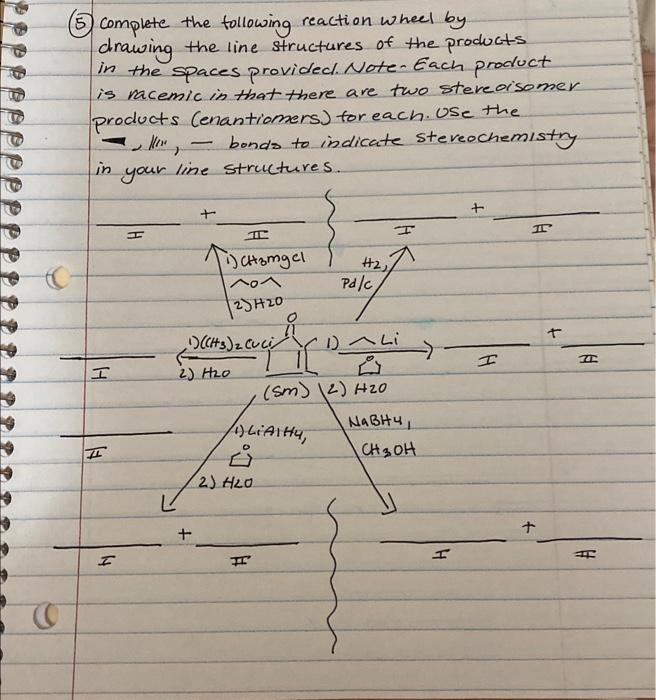 ⑤ Complete the following reaction wheel by
drawing the line structures of the products
in the spaces provided. Note- Each product
is racemic in that there are two stereoisomer
products (enantiomers) for each. Use the
, , — bonds to indicate stereochemistry
in your line structures.
+ +
I II I II
1) CH3MgCl
O
2) H2O
H2,
Pd/C
O
1) (CH3)2CuLi
2) H2O
1) Li
O
2) H2O
+
I I II
(sm)
II
1) LiAlH4,
O
2) H2O
NaBH4,
CH3OH
+ +
I II I II